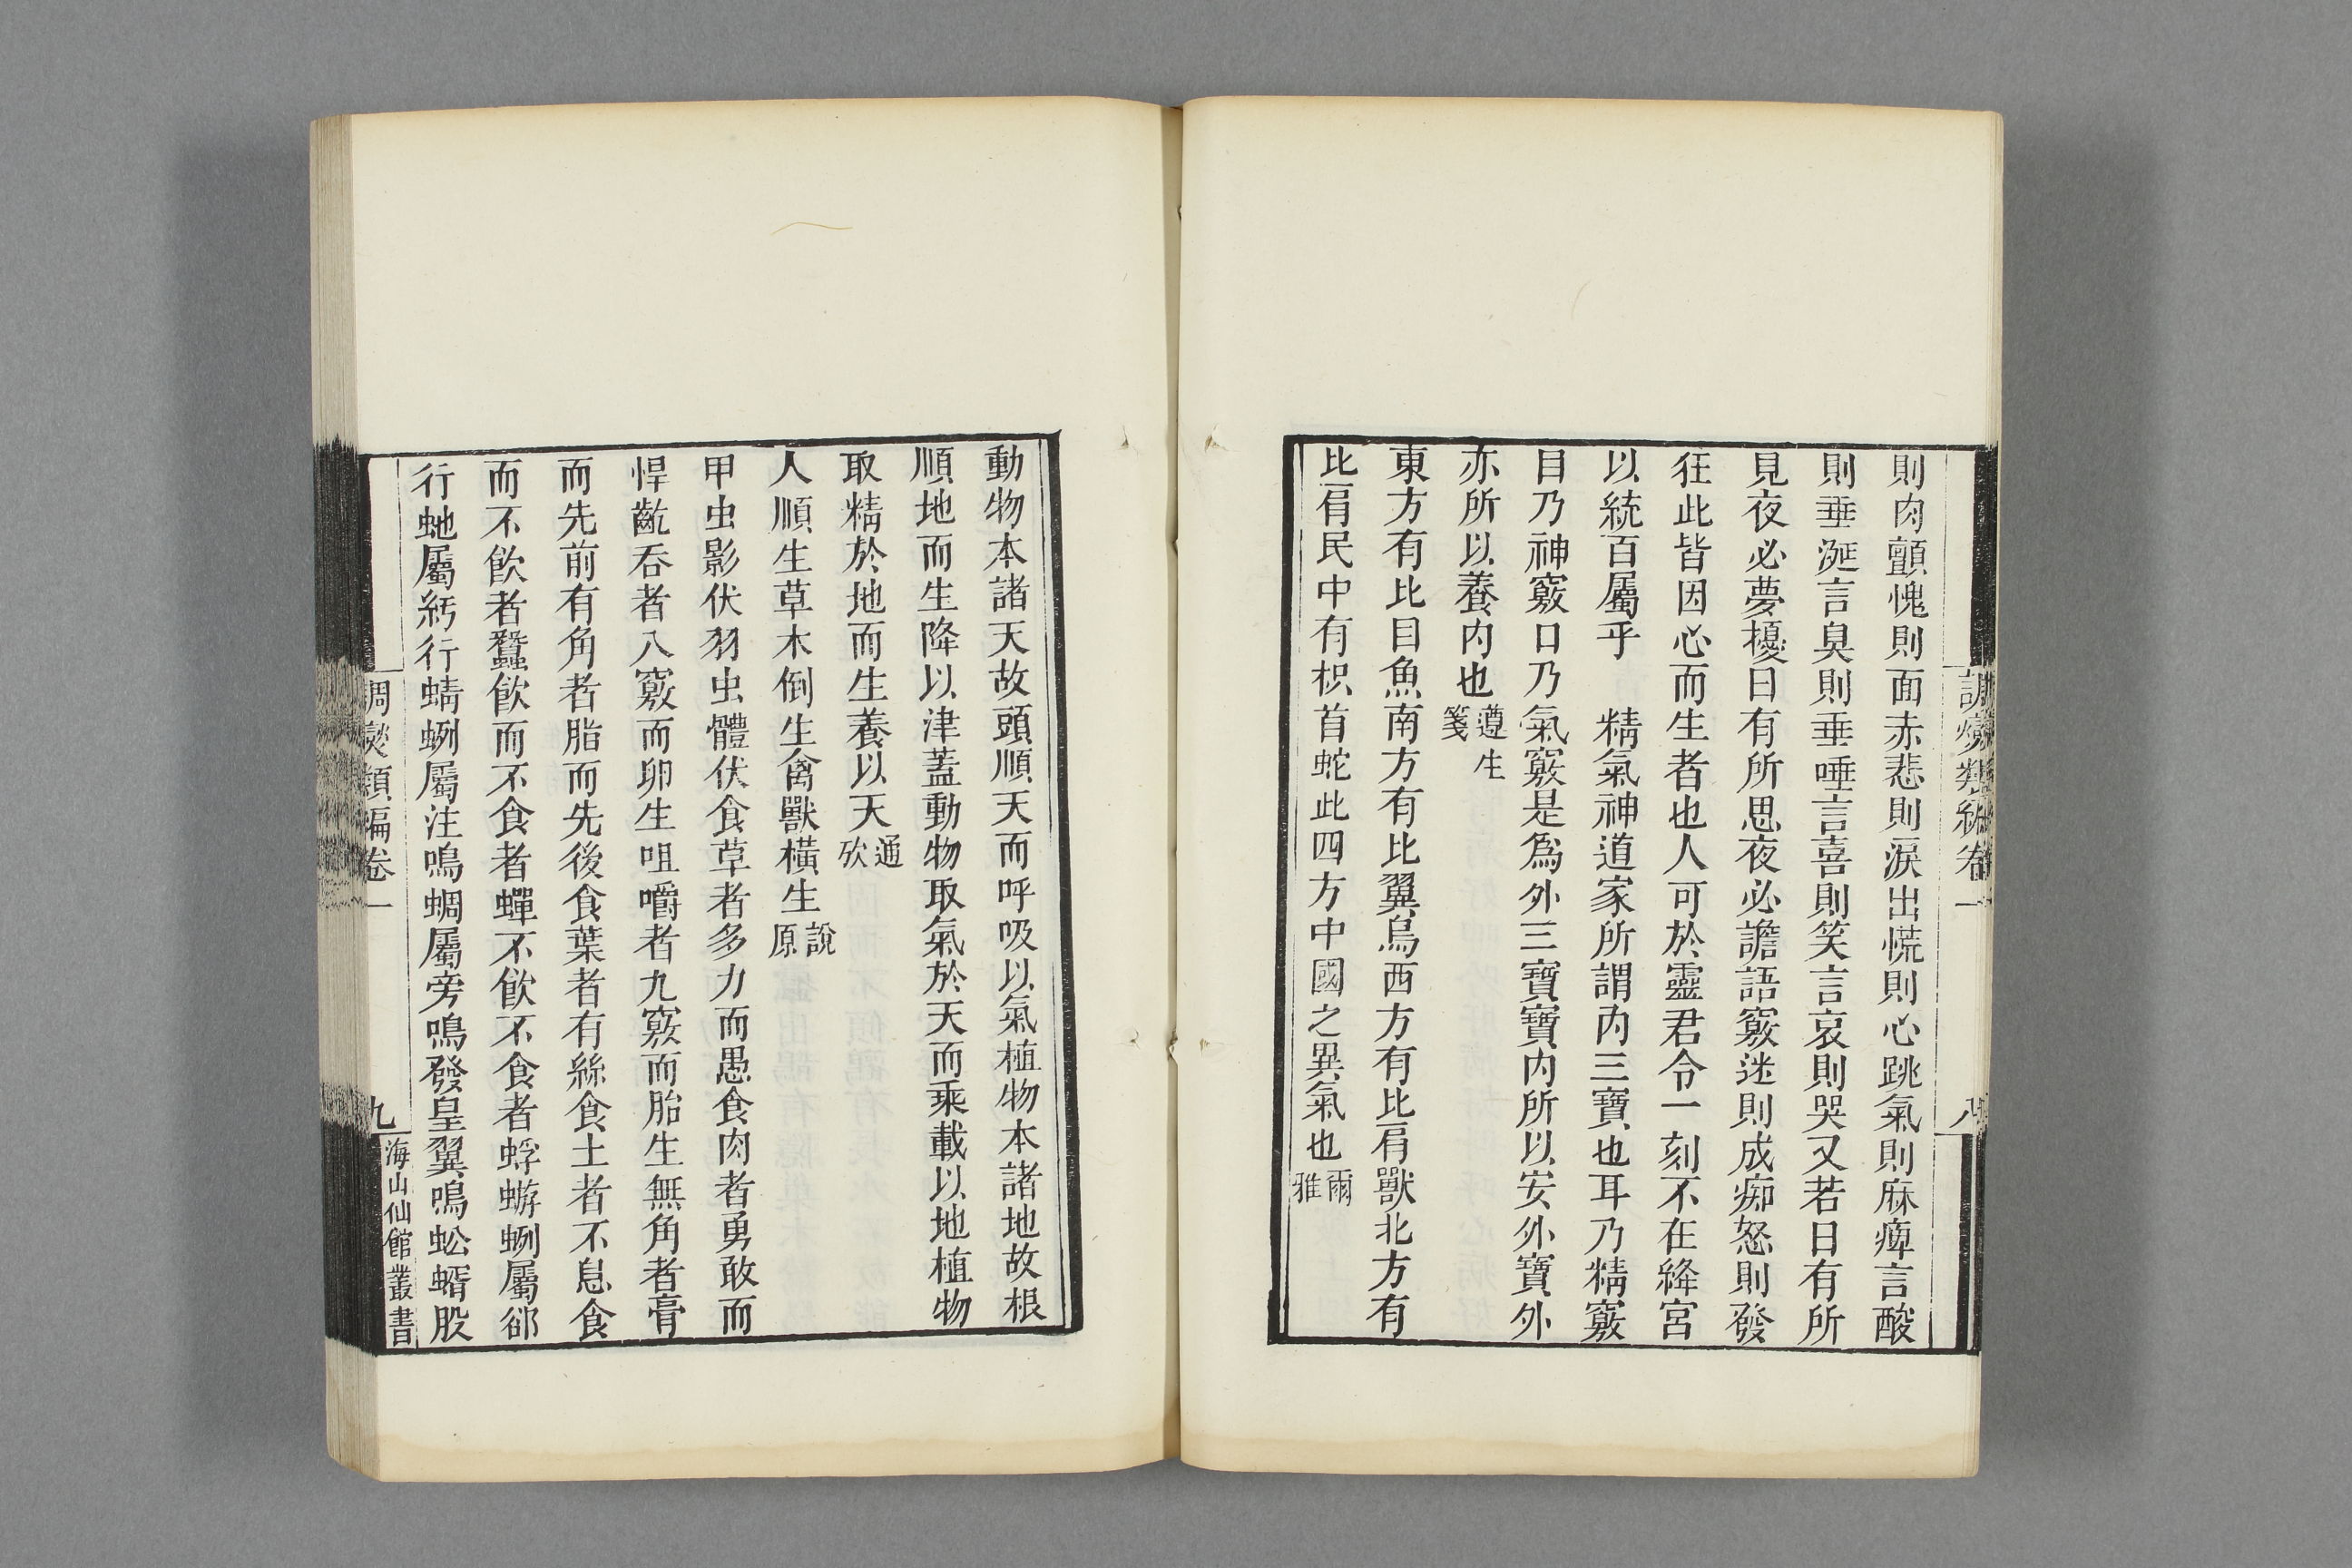 調燮類編卷一
八
則肉顫愧則面赤悲則淚出慌則心跳氣則麻痺言酸
則垂涎言臭則垂唾言喜則笑言哀則哭又若日有所
見夜必夢擾日有所思夜必譫語竅迷則成痴怒則發
狂此皆因心而生者也人可於靈君令一刻不在絳宮
以統百屬乎　精氣神道家所謂內三寶也耳乃精竅
目乃神竅口乃氣竅是爲外三寶寶內所以安外寶外
亦所以養內也遵生箋
東方有比目魚南方有比翼鳥西方有比肩獸北方有
比肩民中有枳首蛇此四方中國之異氣也爾雅
動物本諸天故頭順天而呼吸以氣植物本諸地故根
順地而生降以津蓋動物取氣於天而乘載以地植物
取精於地而生養以天通攷
人順生草木倒生禽獸橫生說原
甲虫影伏羽虫體伏食草者多力而愚食肉者勇敢而
悍齕吞者八竅而卵生咀嚼者九竅而胎生無角者膏
而先前有角者脂而先後食葉者有絲食土者不息食
而不飲者蠶飲而不食者蟬不飲不食者蜉蝣蛚屬郤
行虵屬紆行蜻蛚屬注鳴蜩屬旁鳴發皇翼鳴蚣蝑股
調燮類編卷一
九
海山仙館叢書